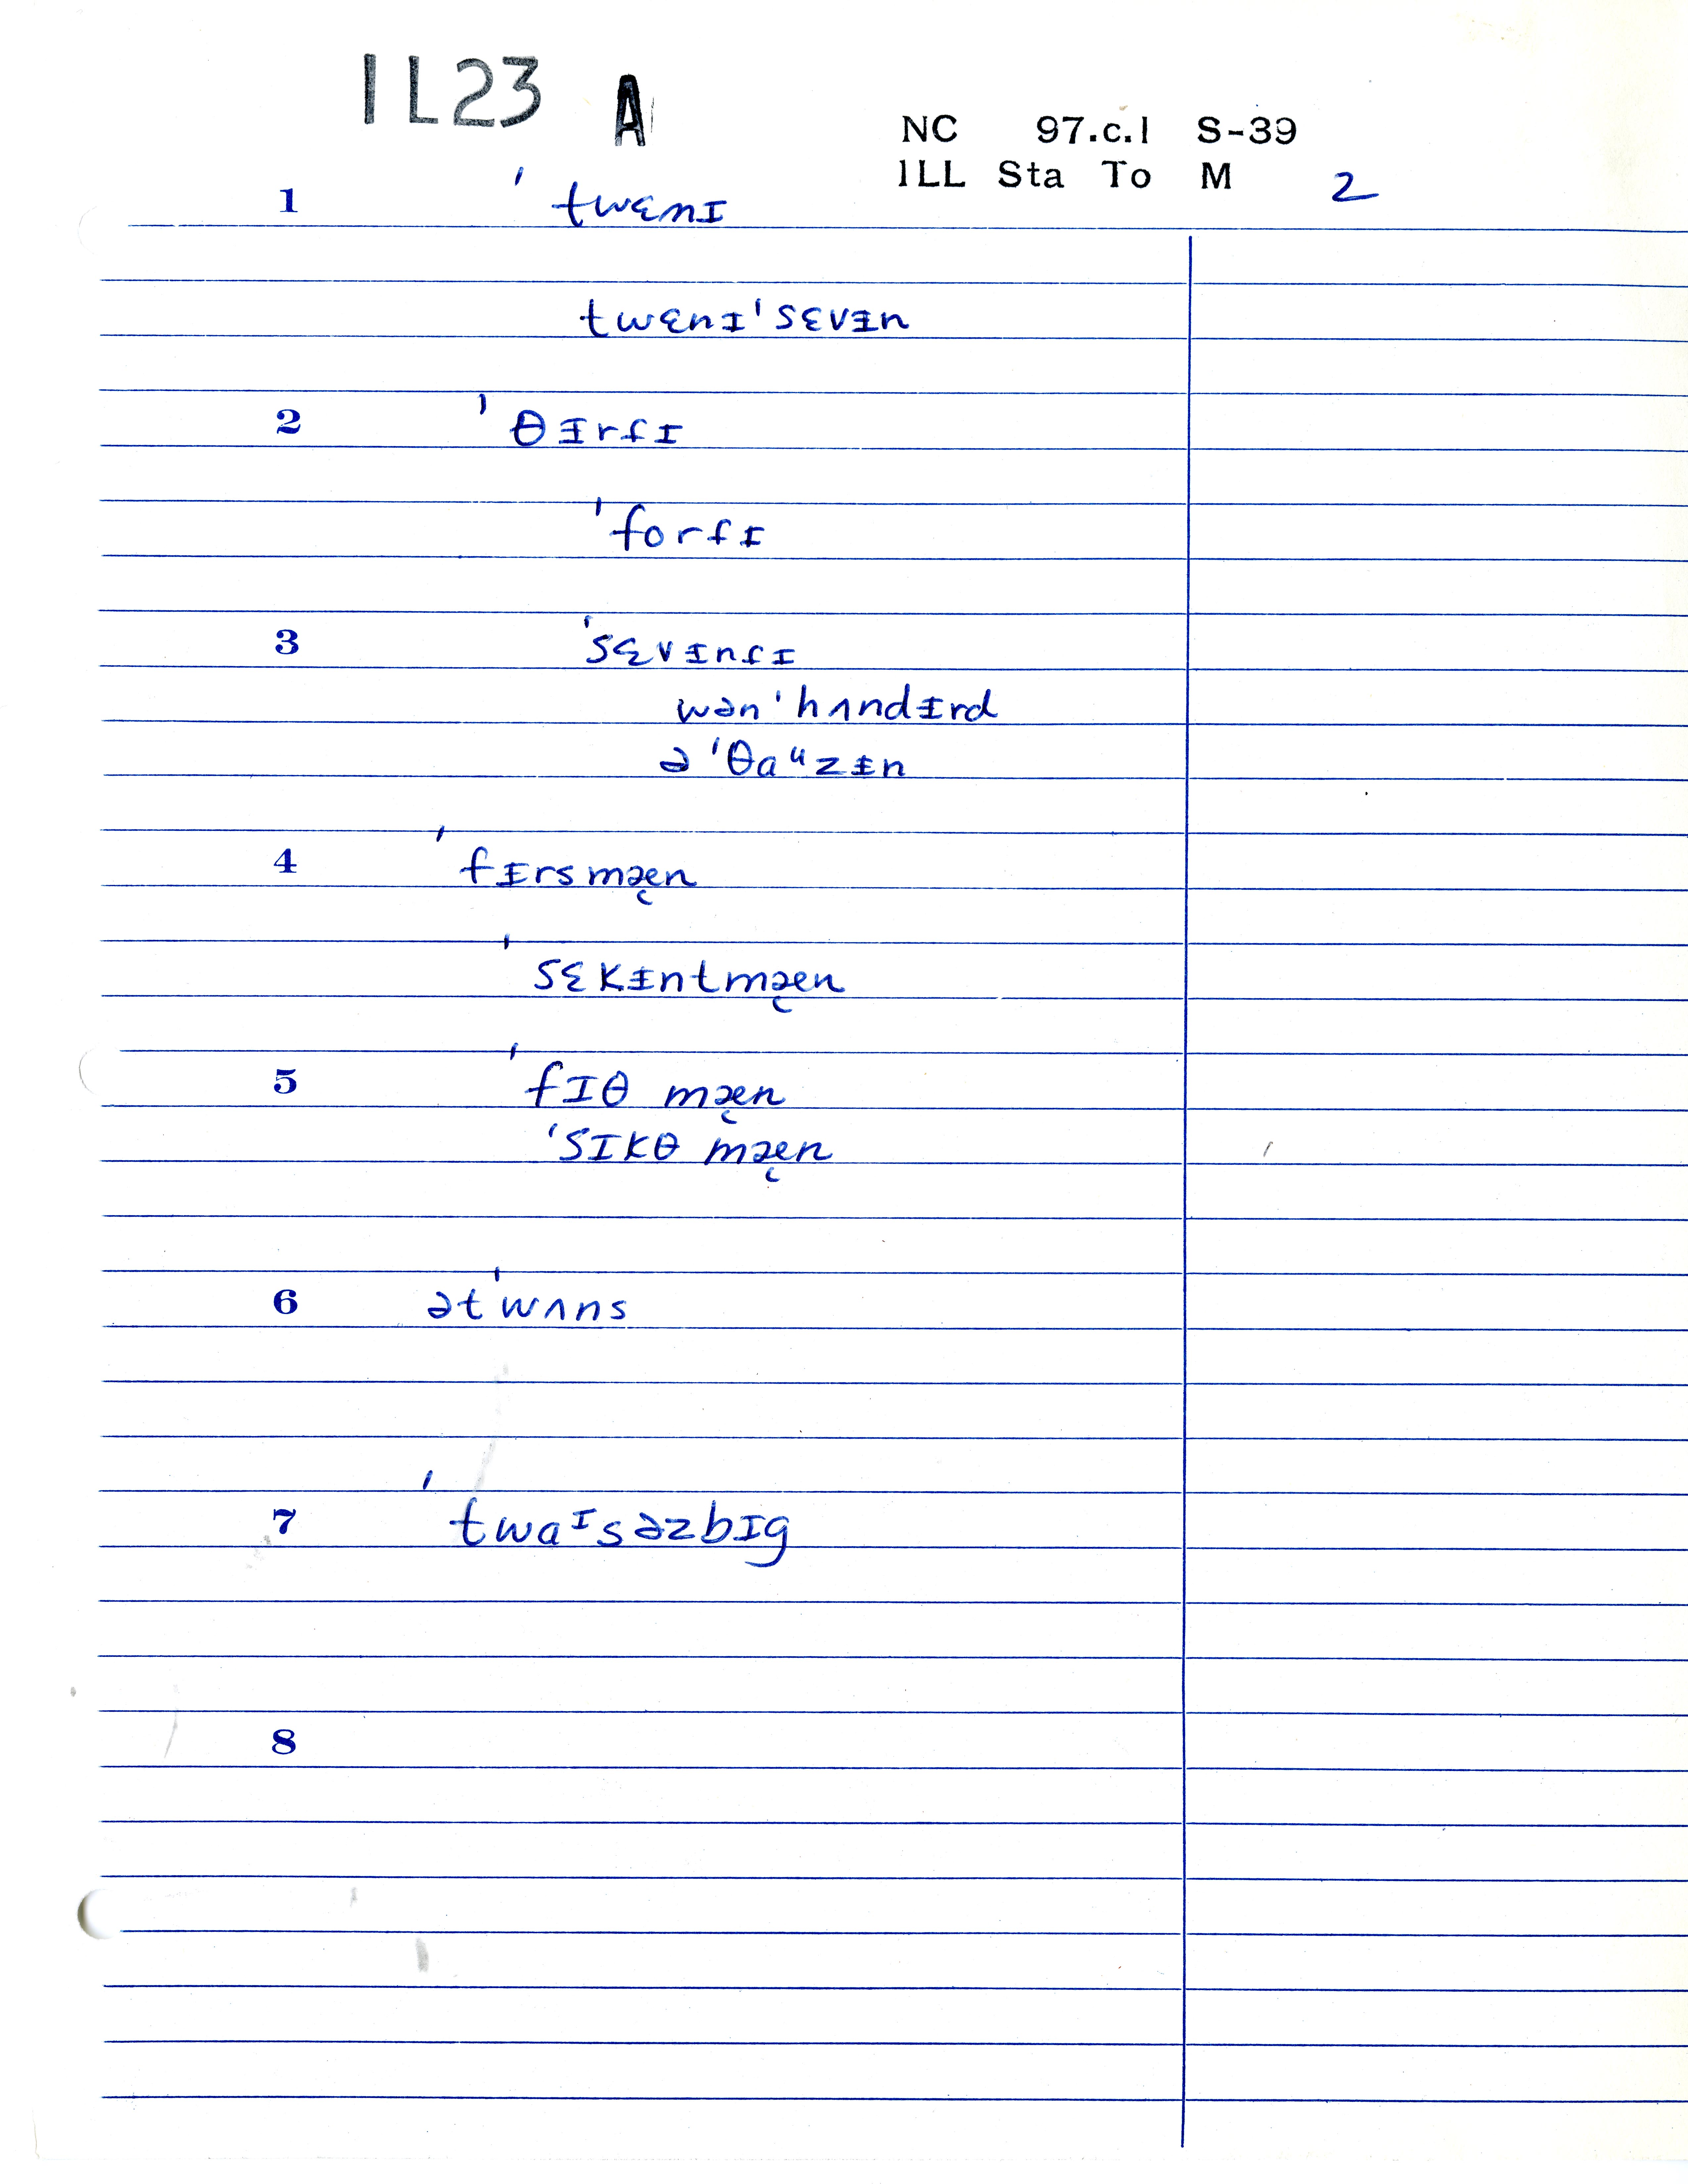 1L23 A
NC 97.c.1 S-39
ILL Sta To M 2
1 ˈtwɛnɪ
twɛnɪˈsɛvɪ̵n
2 ˈθɪ̵rɾɪ
ˈforɾɪ
3 ˈsɛvɪ̵nɾɪ
wənˈhʌndɪ̵rd
əˈθaᵘzɪ̵n
4 ˈfɪ̵rsmæ̨n
ˈsɛkɪ̵ntmæ̨n
5 ˈfɪθ mæ̨n
ˈsɪkθ mæ̨n
6 ətˈwʌns
7 ˈtwaᶦsəzbɪg
8